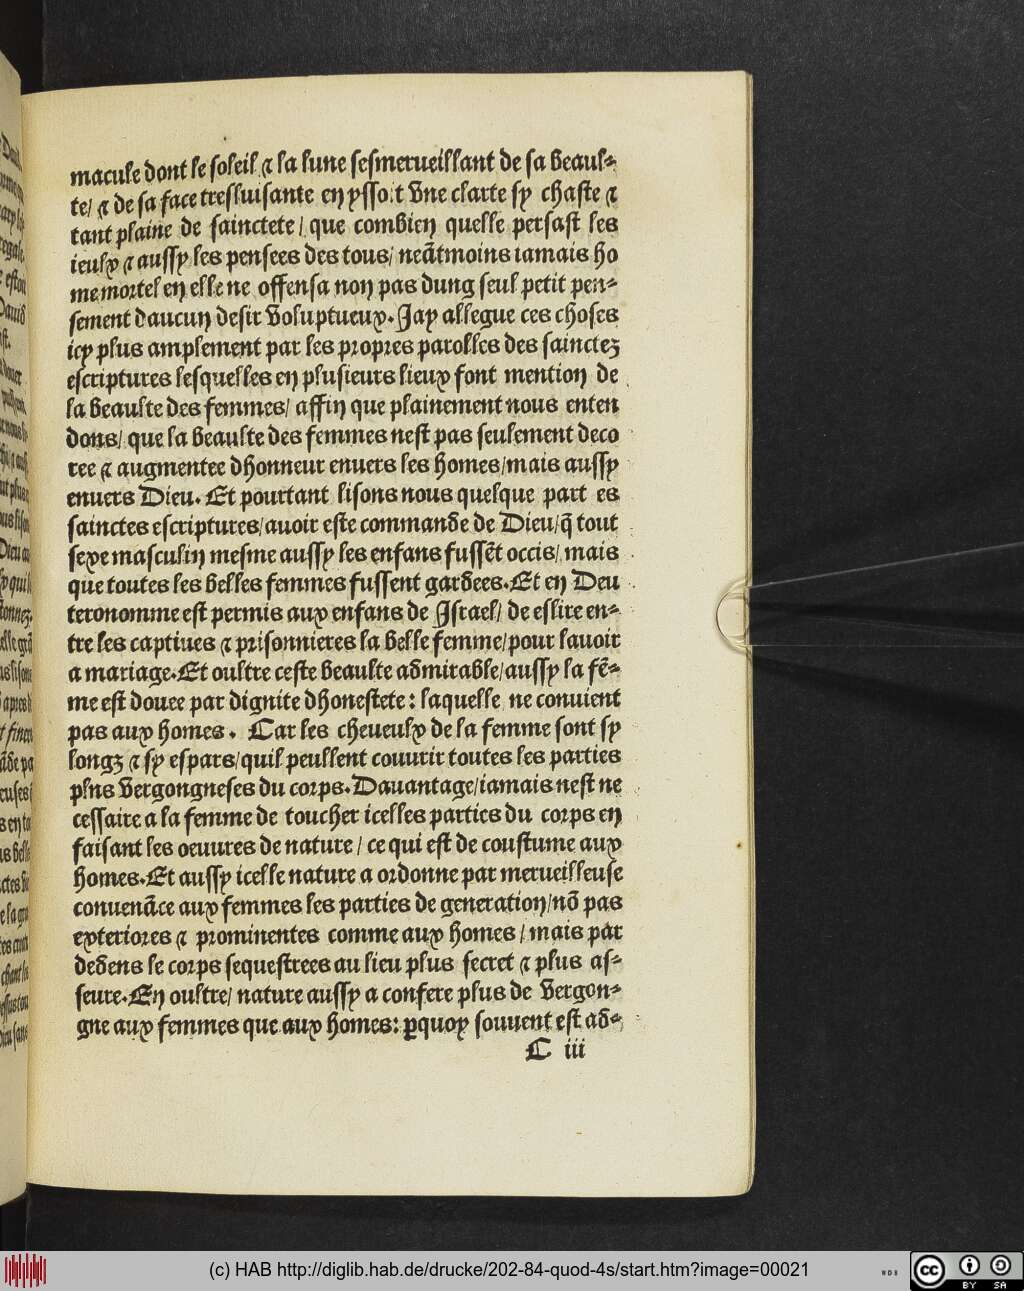 macule dont le soleil ⁊ la lune sesmerueillant de sa beaul⸗
te/ ⁊ de sa face tresluisante en yssoit vne clarte sy chaste ⁊
tant plaine de sainctete/ que combien quelle persast les
ieulx ⁊ aussy les pensees des tous/ neātmoins iamais ho
me mortel en elle ne offensa non pas dung seul petit pen⸗
sement daucun desir voluptueux. Jay allegue ces choses
icy plus amplement par les propres parolles des sainctez
escriptures lesquelles en plusieurs lieux font mention de
la beaulte des femmes/ affin que plainement nous enten
dons/ que la beaulte des femmes nest pas seulement deco
ree ⁊ augmentee dhonneur enuers les homes/mais aussy
enuers Dieu. Et pourtant lisons nous quelque part es
sainctes escriptures/auoir este commande de Dieu/q̄ tout
sexe masculin mesme aussy les enfans fussēt occis/ mais
que toutes les belles femmes fussent gardees. Et en Deu
teronomme est permis aux enfans de Israel/ de eslire en⸗
tre les captiues ⁊ prisonnieres la belle femme/pour lauoir
a mariage. Et oultre ceste beaulte admirable/aussy la fē⸗
me est douee par dignite dhonestete: laquelle ne conuient
pas aux homes. Car les cheueulx de la femme sont sy
longz ⁊ sy espars/quil peullent couurir toutes les parties
plns vergongneses du corps. Dauantage/iamais nest ne
cessaire a la femme de toucher icelles parties du corps en
faisant les oeuures de nature / ce qui est de coustume aux
homes. Et aussy icelle nature a ordonne par merueilleuse
conuenāce aux femmes les parties de generation/nō pas
exteriores ⁊ prominentes comme aux homes / mais par
dedens le corps sequestrees au lieu plus secret ⁊ plus as⸗
seure. En oultre/ nature aussy a confere plus de vergon⸗
gne aux femmes que aux homes: ꝑquoy souuent est ad⸗
C iii
(c) HAB http://diglib.hab.de/drucke/202-84-quod-4s/start.htm?image=00021
WDB
cc BY SA